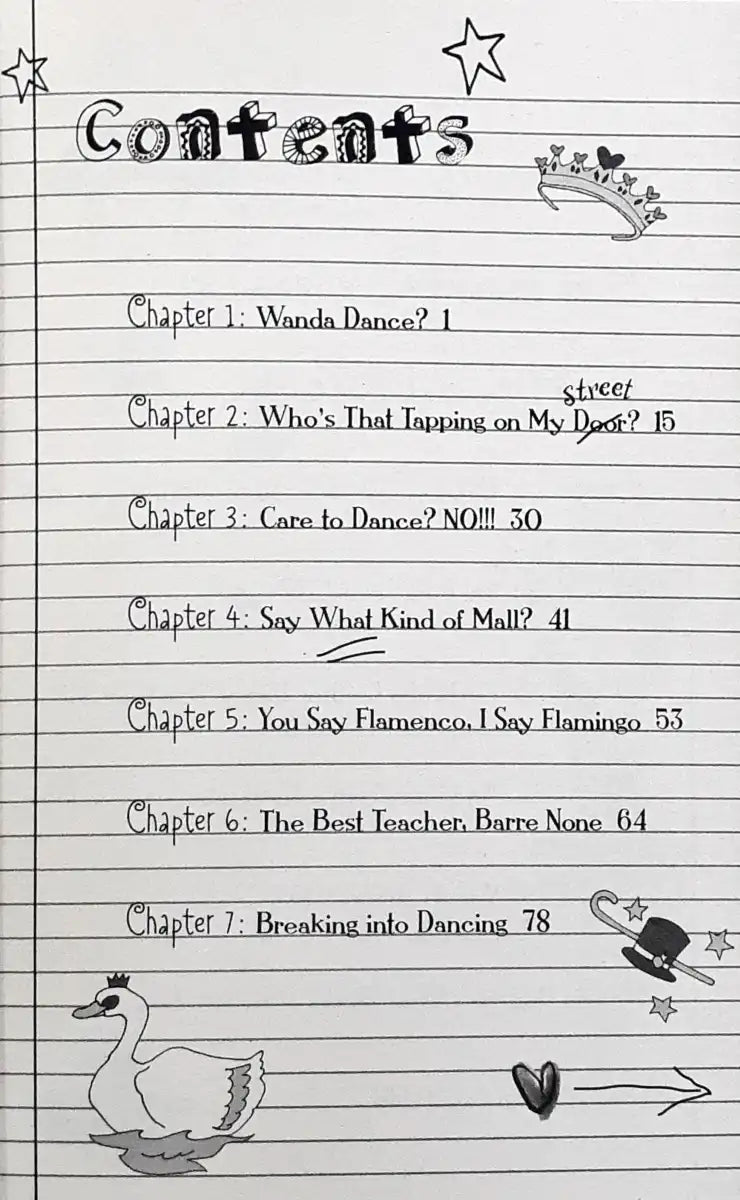 Contents
Chapter 1: Wanda Dance? 1
street
Chapter 2: Who's That Tapping on My Door? 15
Chapter 3: Care to Dance? NO!!! 30
Chapter 4: Say What Kind of Mall? 41
Chapter 5: You Say Flamenco, I Say Flamingo 53
Chapter 6: The Best Teacher, Barre None 64
Chapter 7: Breaking into Dancing 78